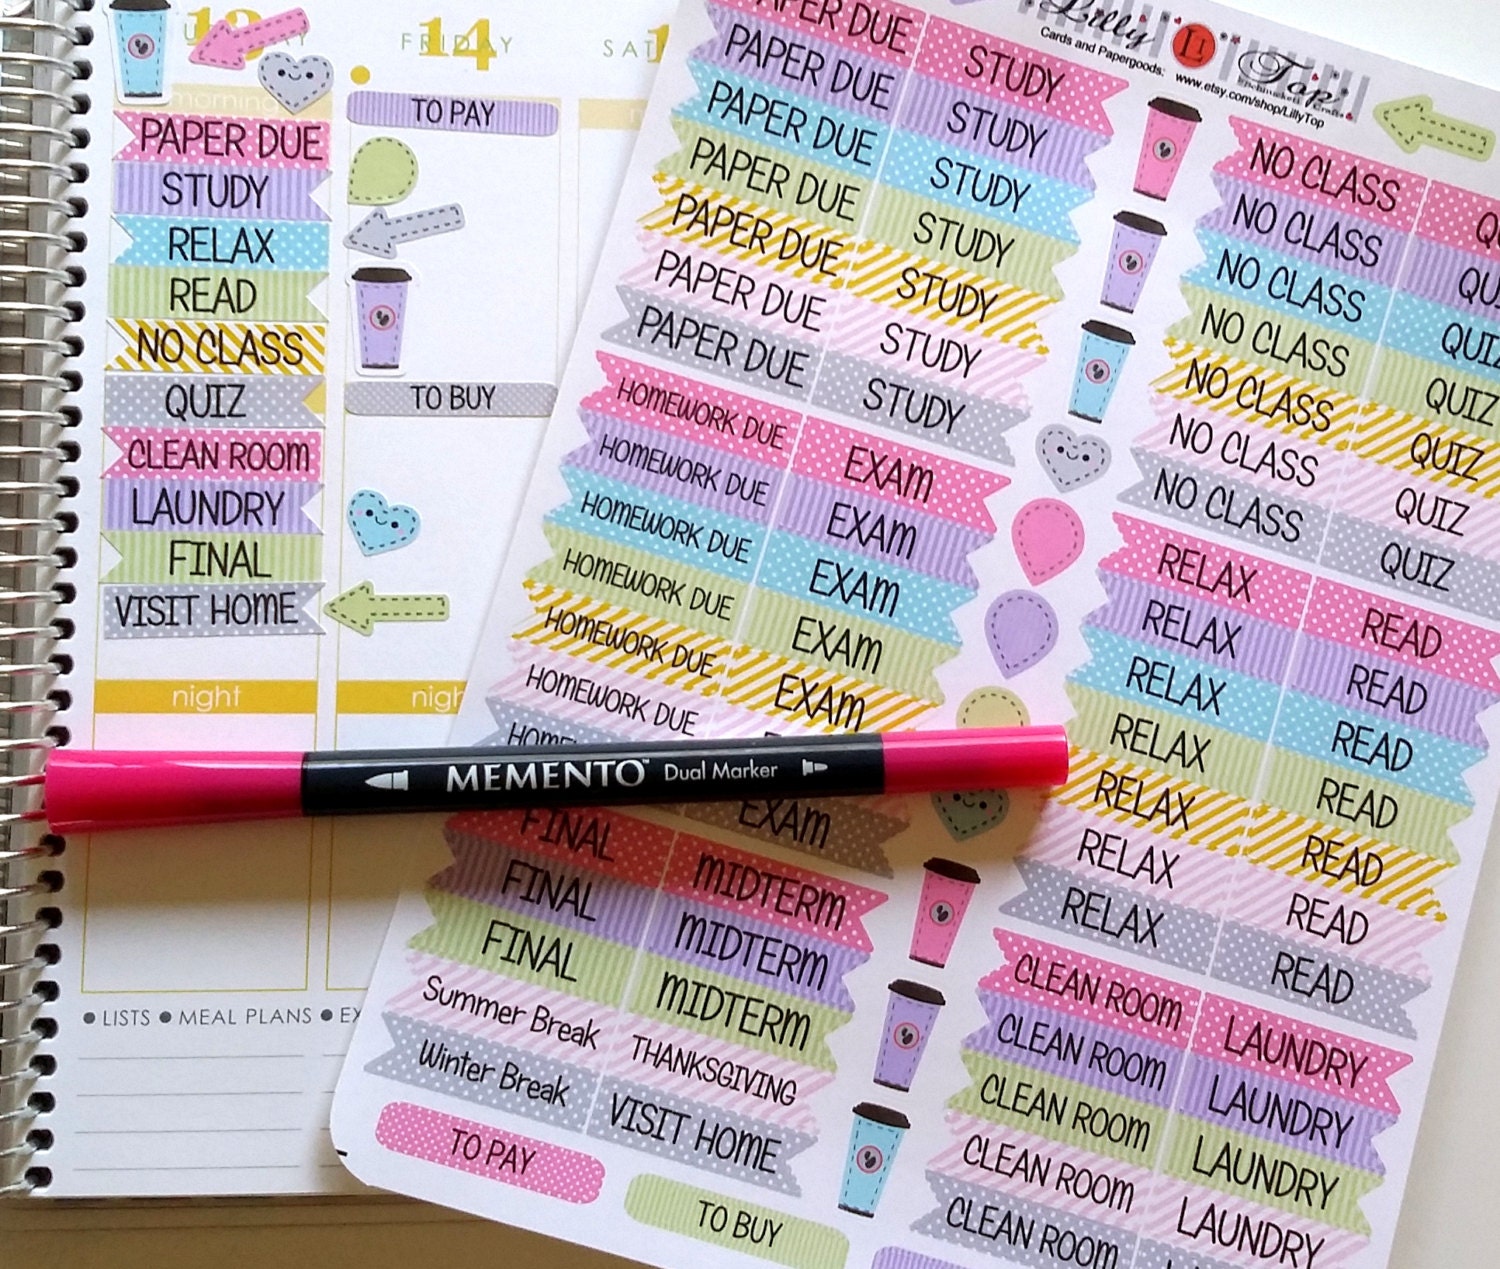 13
14
FRIDAY
morning
PAPER DUE
STUDY
RELAX
READ
NO CLASS
QUIZ
CLEAN ROOM
LAUNDRY
FINAL
VISIT HOME
night
TO PAY
TO BUY
nigh
• LISTS • MEAL PLANS • EX
MEMENTO™ Dual Marker
Lilly
LT
Top
Cards and Papergoods:
www.etsy.com/shop/LillyTop
PAPER DUE STUDY
PAPER DUE STUDY
PAPER DUE STUDY
PAPER DUE STUDY
PAPER DUE STUDY
PAPER DUE STUDY
PAPER DUE STUDY
HOMEWORK DUE EXAM
HOMEWORK DUE EXAM
HOMEWORK DUE EXAM
HOMEWORK DUE EXAM
HOMEWORK DUE EXAM
HOMEWORK DUE
HOMEW
EXAM
FINAL MIDTERM
FINAL MIDTERM
FINAL MIDTERM
Summer Break THANKSGIVING
Winter Break VISIT HOME
TO PAY
TO BUY
NO CLASS QU
NO CLASS QUI
NO CLASS QUIZ
NO CLASS QUIZ
NO CLASS QUIZ
NO CLASS QUIZ
NO CLASS QUIZ
RELAX READ
RELAX READ
RELAX READ
RELAX READ
RELAX READ
RELAX READ
RELAX READ
CLEAN ROOM LAUNDRY
CLEAN ROOM LAUNDRY
CLEAN ROOM LAUNDRY
CLEAN ROOM LAUNDRY
CLEAN ROOM